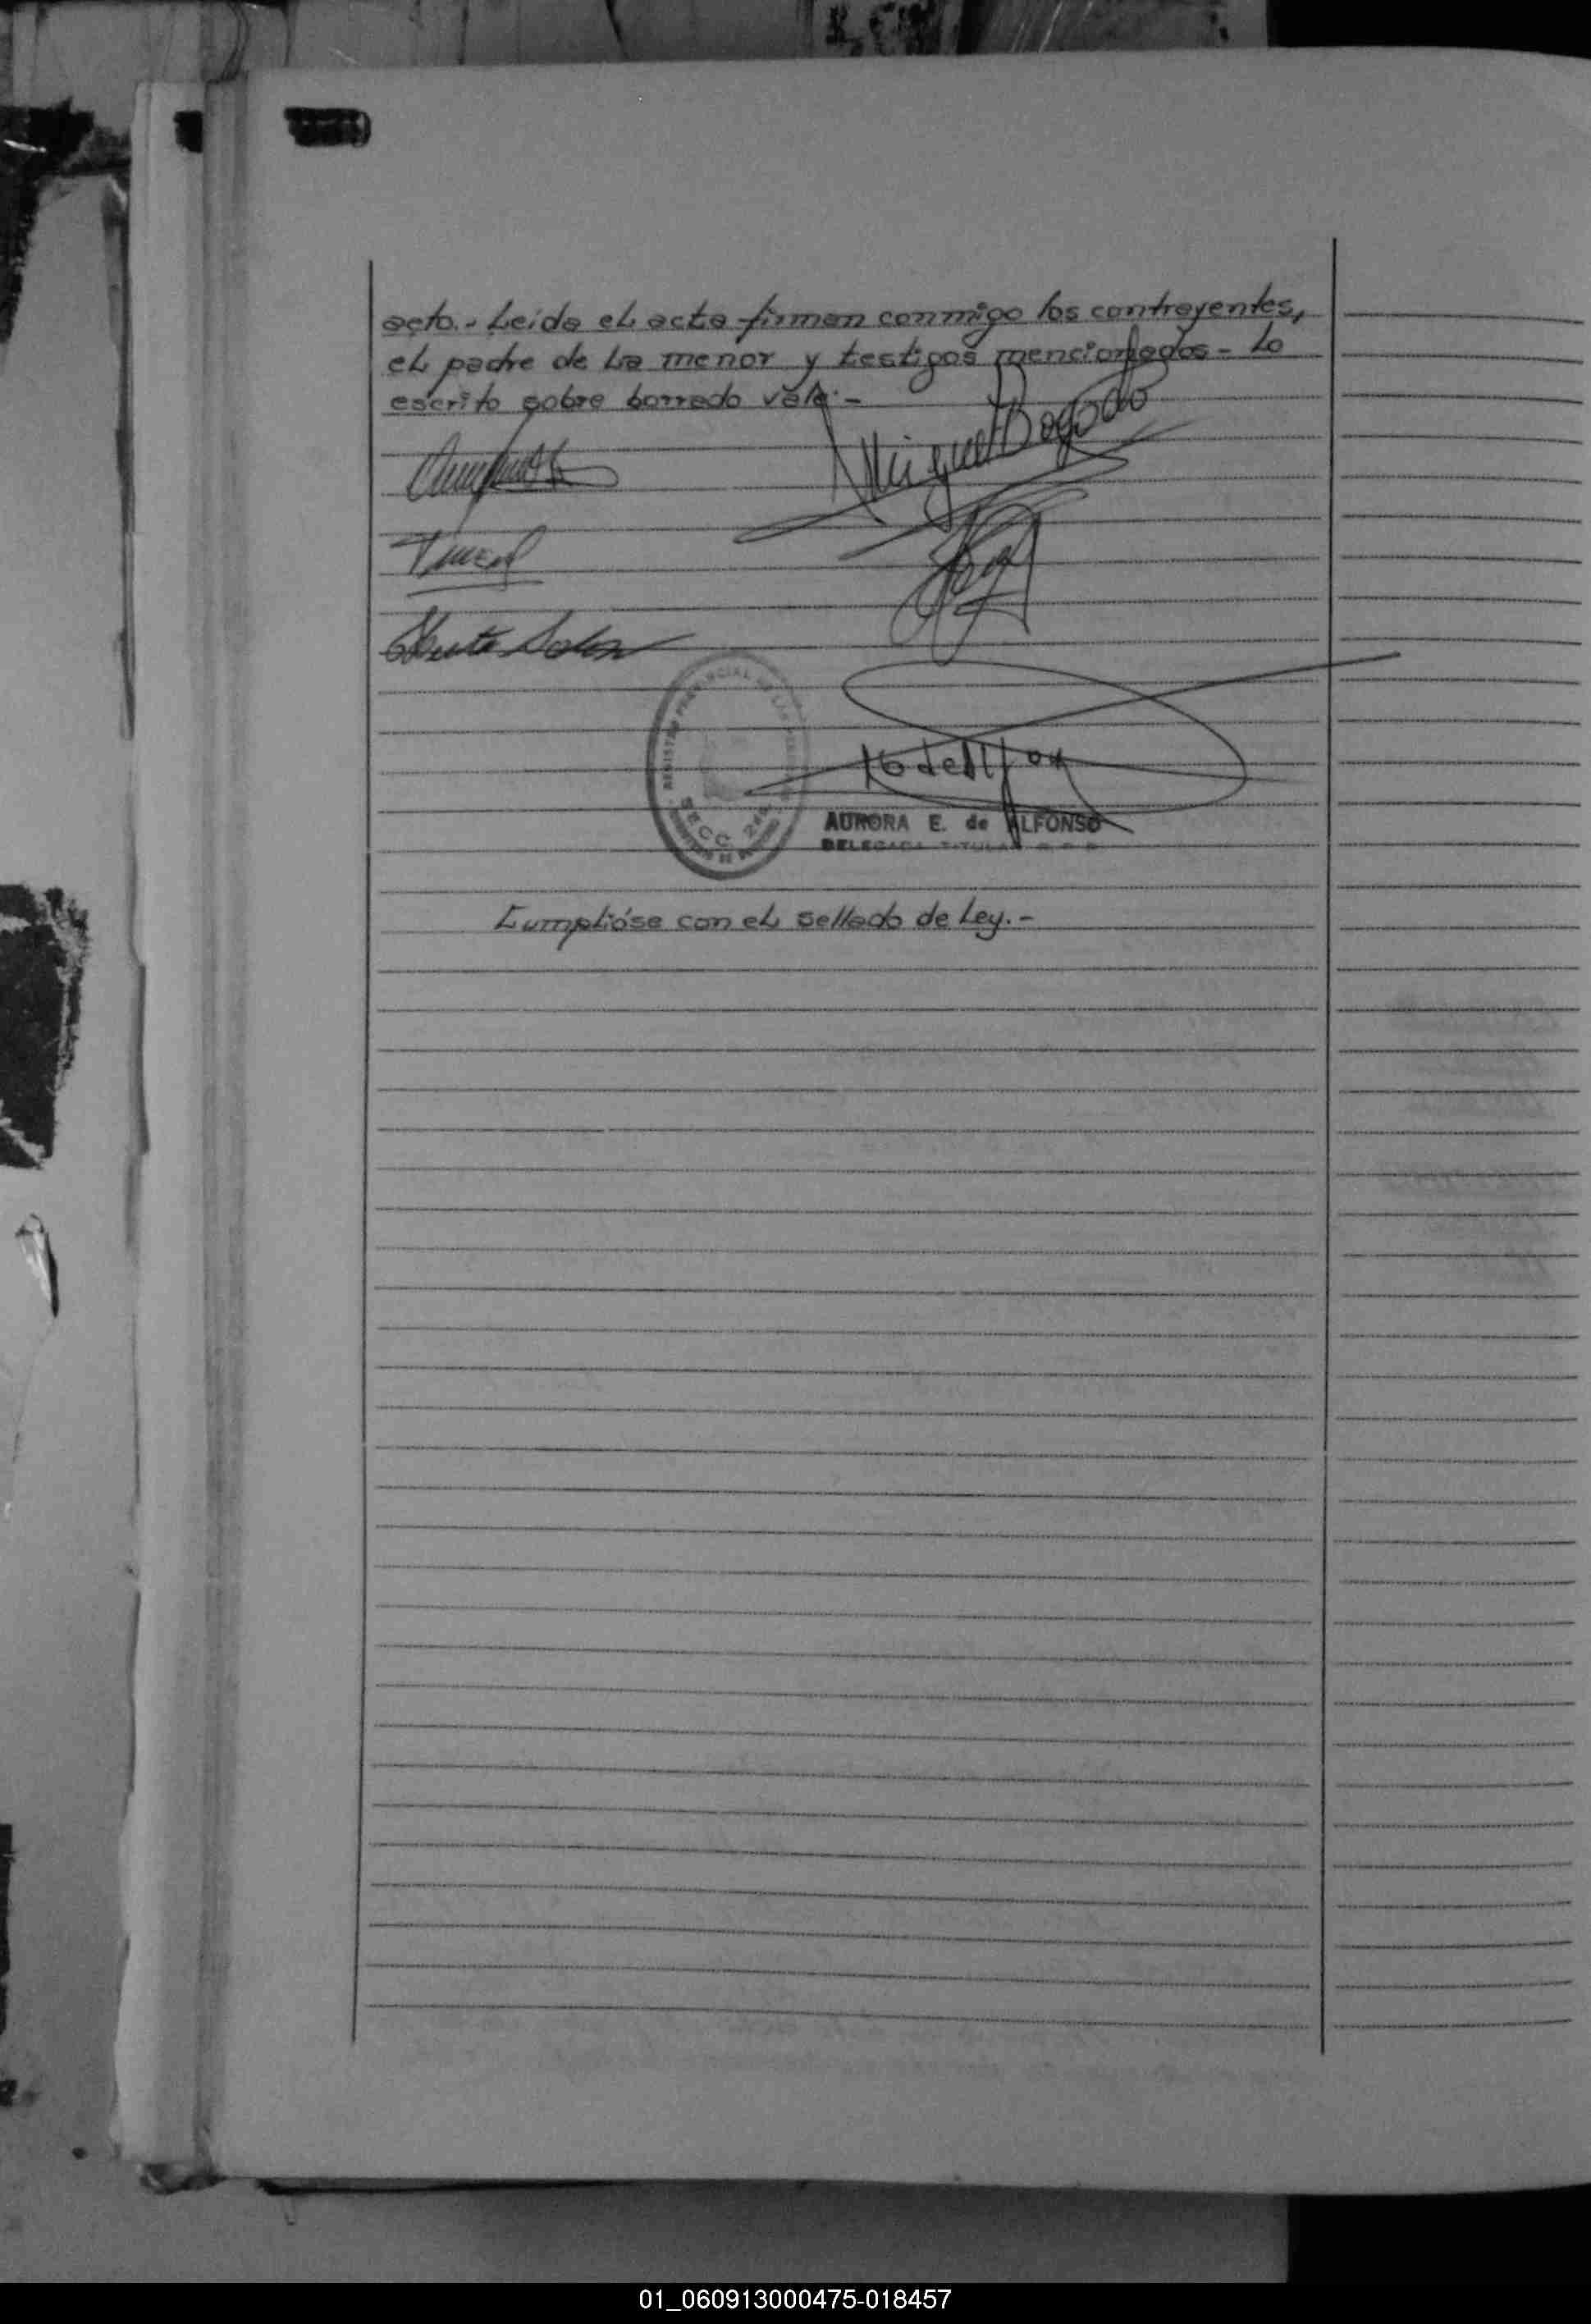 acto.- Leída el acta firman conmigo los contrayentes,
el padre de la menor y testigos mencionados - Lo
escrito sobre borrado vale.-
Miguel Bogado
REGISTRO PROVINCIAL DE LAS
SECC. 24
AURORA E. de ALFONSO
DELEGADA TITULAR
Cumplióse con el sellado de Ley.-
01_060913000475-018457